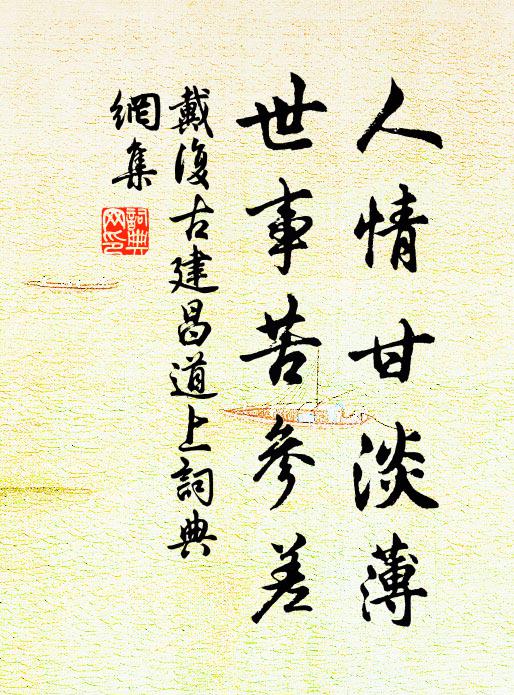 人情甘淡薄
世事苦參差
戴復古建昌道上詞典
網集
詞典
网印